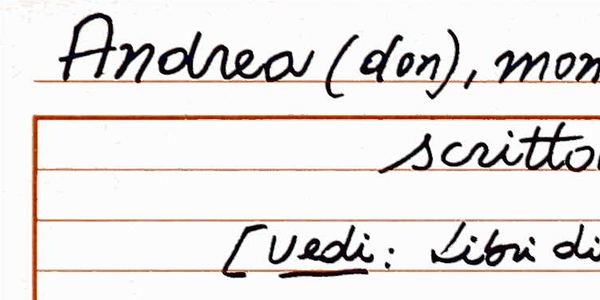 Andrea (don), mon
scritto
[Vedi: Libri di